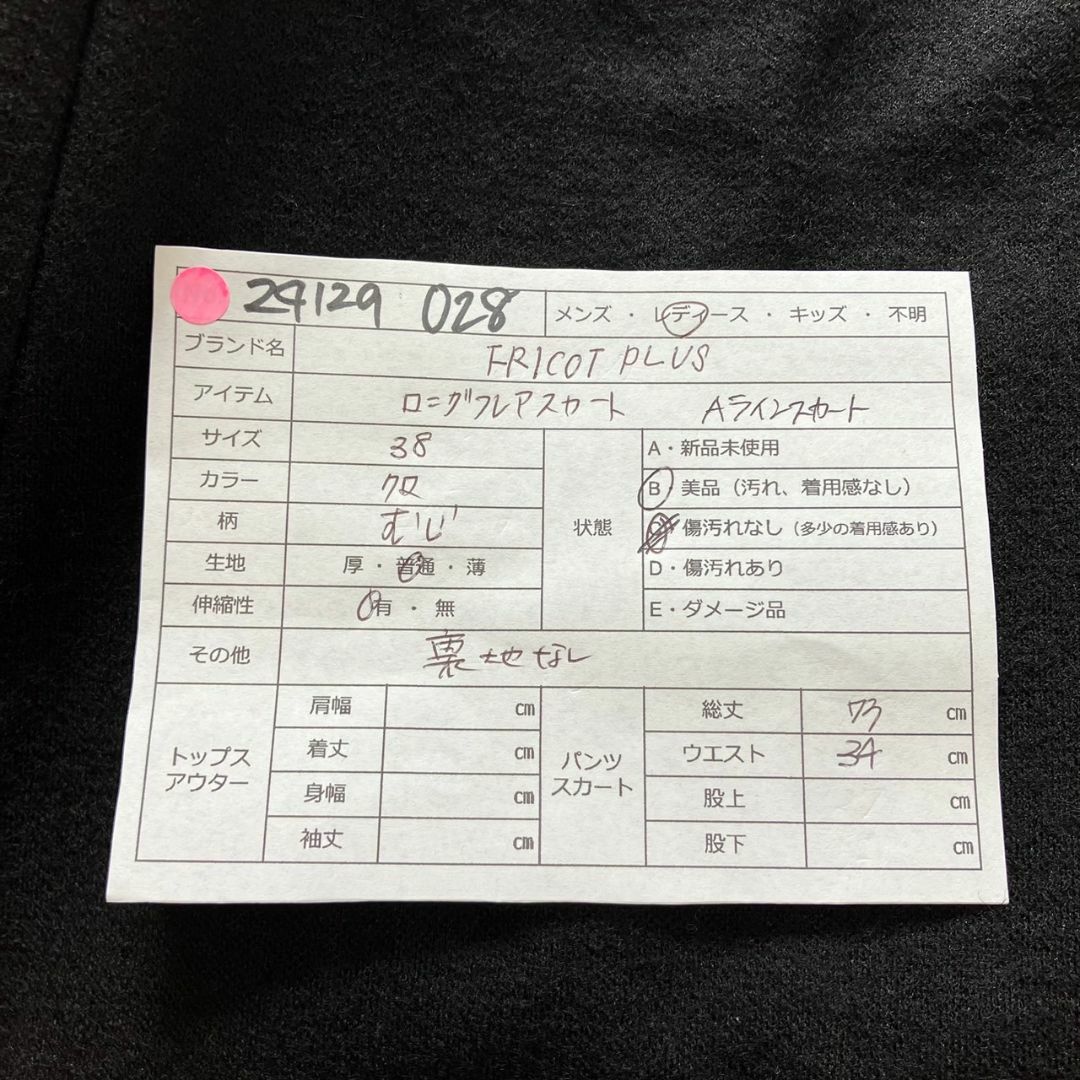 No 24129 028 メンズ ・ レディース ・ キッズ ・ 不明
ブランド名 TRICOT PLUS
アイテム ロングフレアスカート Aラインスカート
サイズ 38
カラー クロ
柄 むじ
生地 厚・普通・薄
伸縮性 有 ・ 無
状態
A・新品未使用
B・美品（汚れ、着用感なし）
傷汚れなし（多少の着用感あり）
D・傷汚れあり
E・ダメージ品
その他 裏地なし
トップス
アウター
肩幅 cm
着丈 cm
身幅 cm
袖丈 cm
パンツ
スカート
総丈 73 cm
ウエスト 34 cm
股上 cm
股下 cm